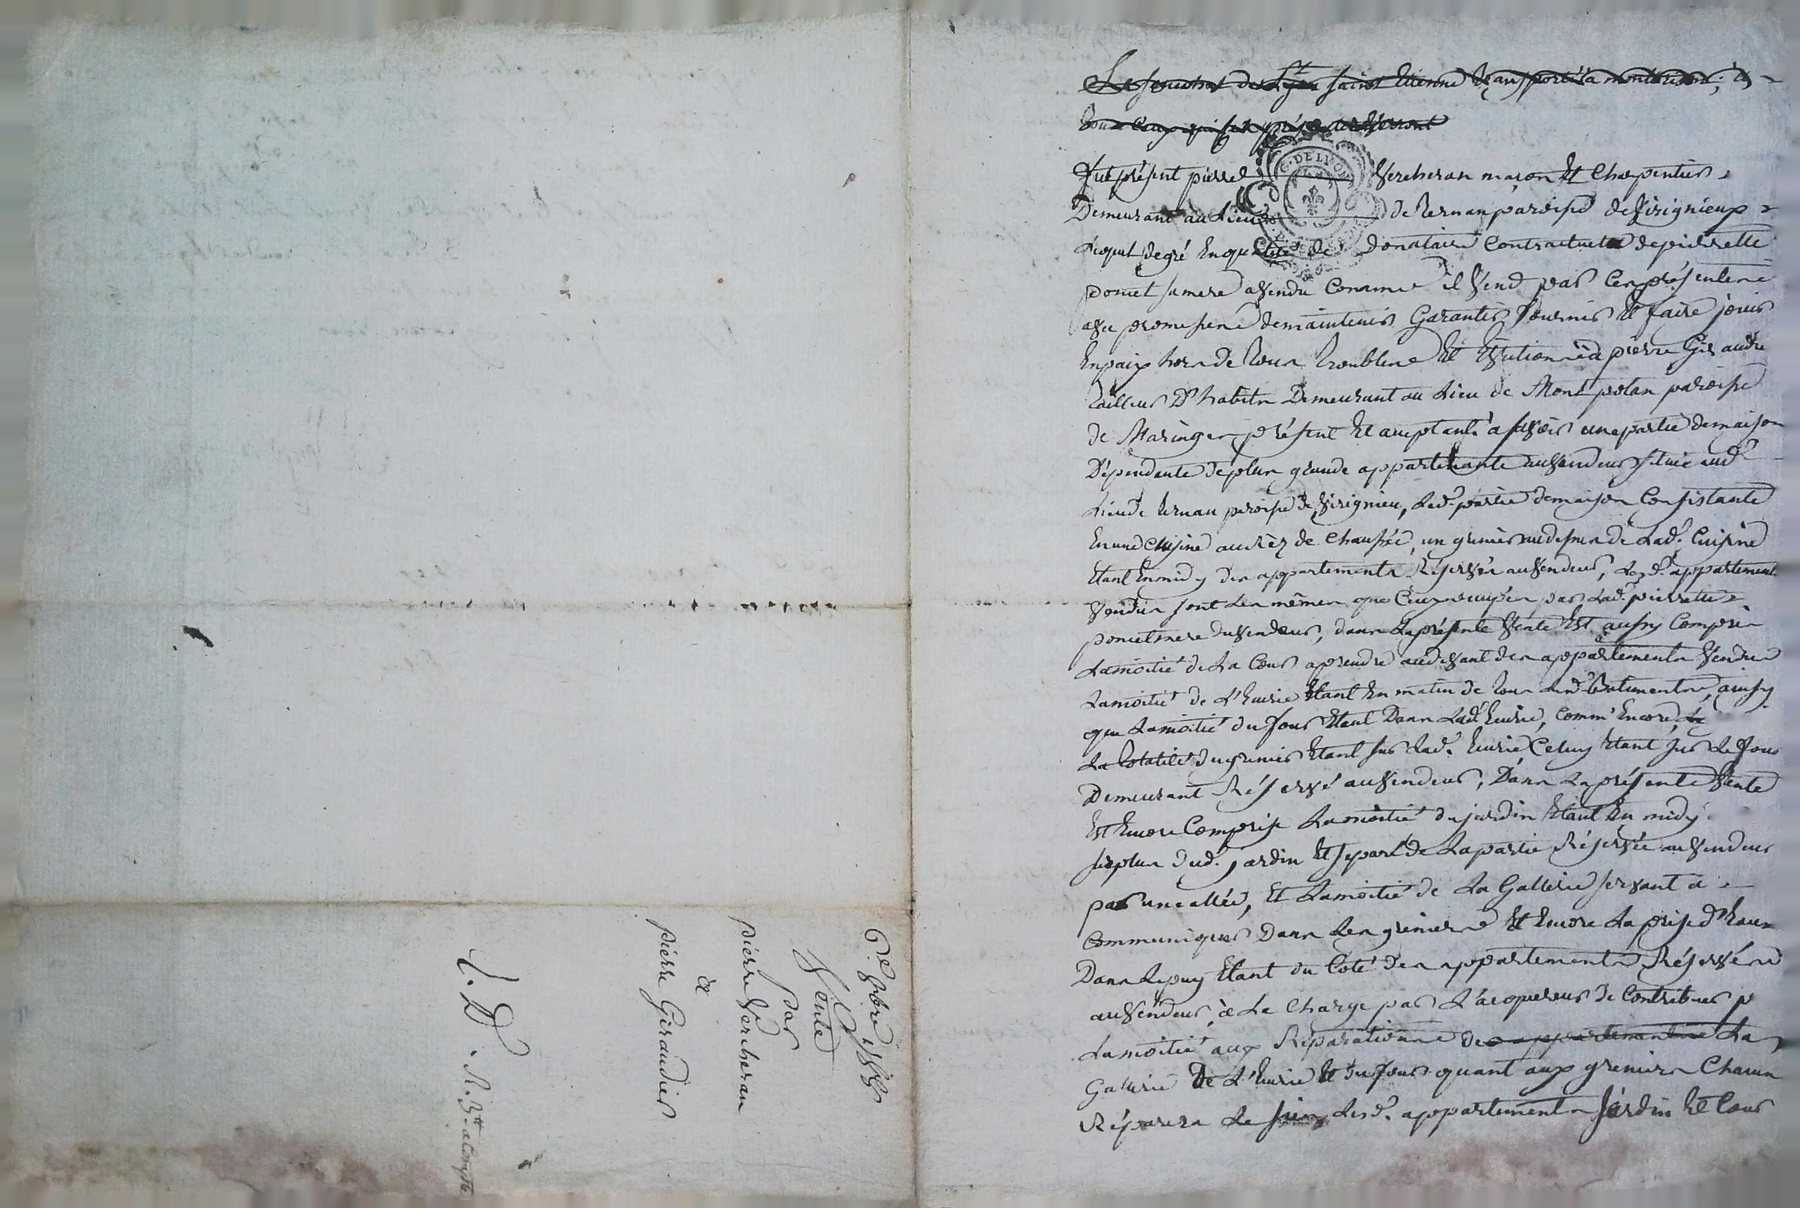 6e 9bre 1788
Vente
par
pierre Vercheran
à
pierre Giraudier
C. D. R. 3tt acompte
Le senechal de Lyon saint Etienne transporté a montbrison; à
tous ceux qui ces présentes verront
G. DE LYON
Fut présent pierre Vercheran maçon Et Charpentier
Demeurant au Lieu de Ternan paroisse de Virignieux
Lequel de gré En qualité de donataire Contractuel de pierrette
poncet sa mere a vendu Comme il vend par Ces présentes
avec promesse de maintenir Garantir fournir Et faire jouir
En paix hors de tous troubles Et Evictions à pierre Giraudie
tailleur D'habits Demeurant au Lieu de Mont polan paroisse
de Maringes présent Et acceptant à savoir une partie de maison
Dépendante de plus grande appartenante au vendeur située aud.
Lieu de ternan paroisse de Virignieu, Lad. partie de maison Consistante
En une Cuisine au Rèz de Chaussée, un grenier au dessus de Lad. Cuisine
Etant En midy des appartements Réservés au vendeur, Lesd. appartements
Vendus sont Les mêmes que Ceux occupés par Lad. pierrette
poncet mere du vendeur, dans La présente Vente Est aussy Compris
La moitié de La Cour a prendre au devant des appartements Vendus
La moitié de L'Ecurie Etant En matin de tous Lesd. Batiments, ainsy
que La moitié du four Etant Dans Lad. Ecurie, Comm' Encore, La
La totalité du grenier Etant sur Lad. Ecurie Celuy Etant sur Le four
Demeurant Réservé au vendeur, Dans La présente Vente
Est Encore Comprise La moitié du jardin Etant En midy
surplus dud. jardin Et séparé de La partie Réservée au vendeur
par une allée, Et La moitié de La Gallerie servant à
Communiquer Dans Les greniers Et Encore La prise d'Eaux
Dans Le puy Etant du Coté des appartements Réservés
au vendeur, à La Charge par L'acquereur de Contribuer p
La moitié aux Réparations des appartements La
Gallerie De L'Ecurie Et du four quant aux greniers Chacun
Réparera Le sien, Lesd. appartements Jardin Et Cour